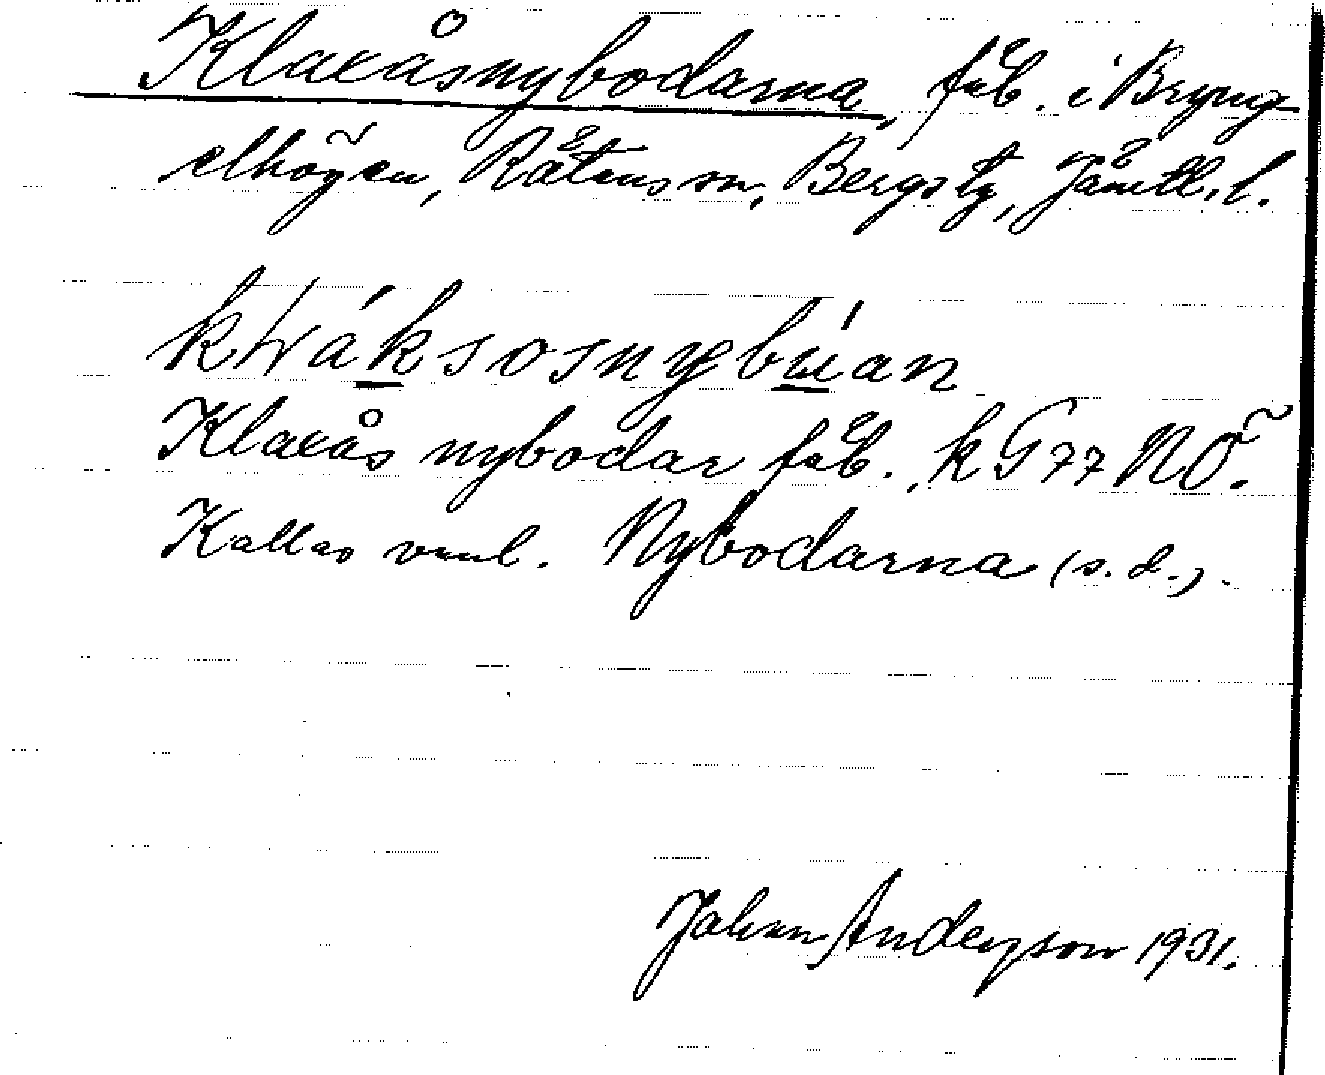 Klaxåsnybodarna, fäb. i Bryng-
elhögen, Rätans sn, Bergs tg, Jämtl. l.
Klaxås nybodar fäb. kG 77 NÖ.
Kallas vanl. Nybodarna (s. d.).
Johan Anderson 1931.